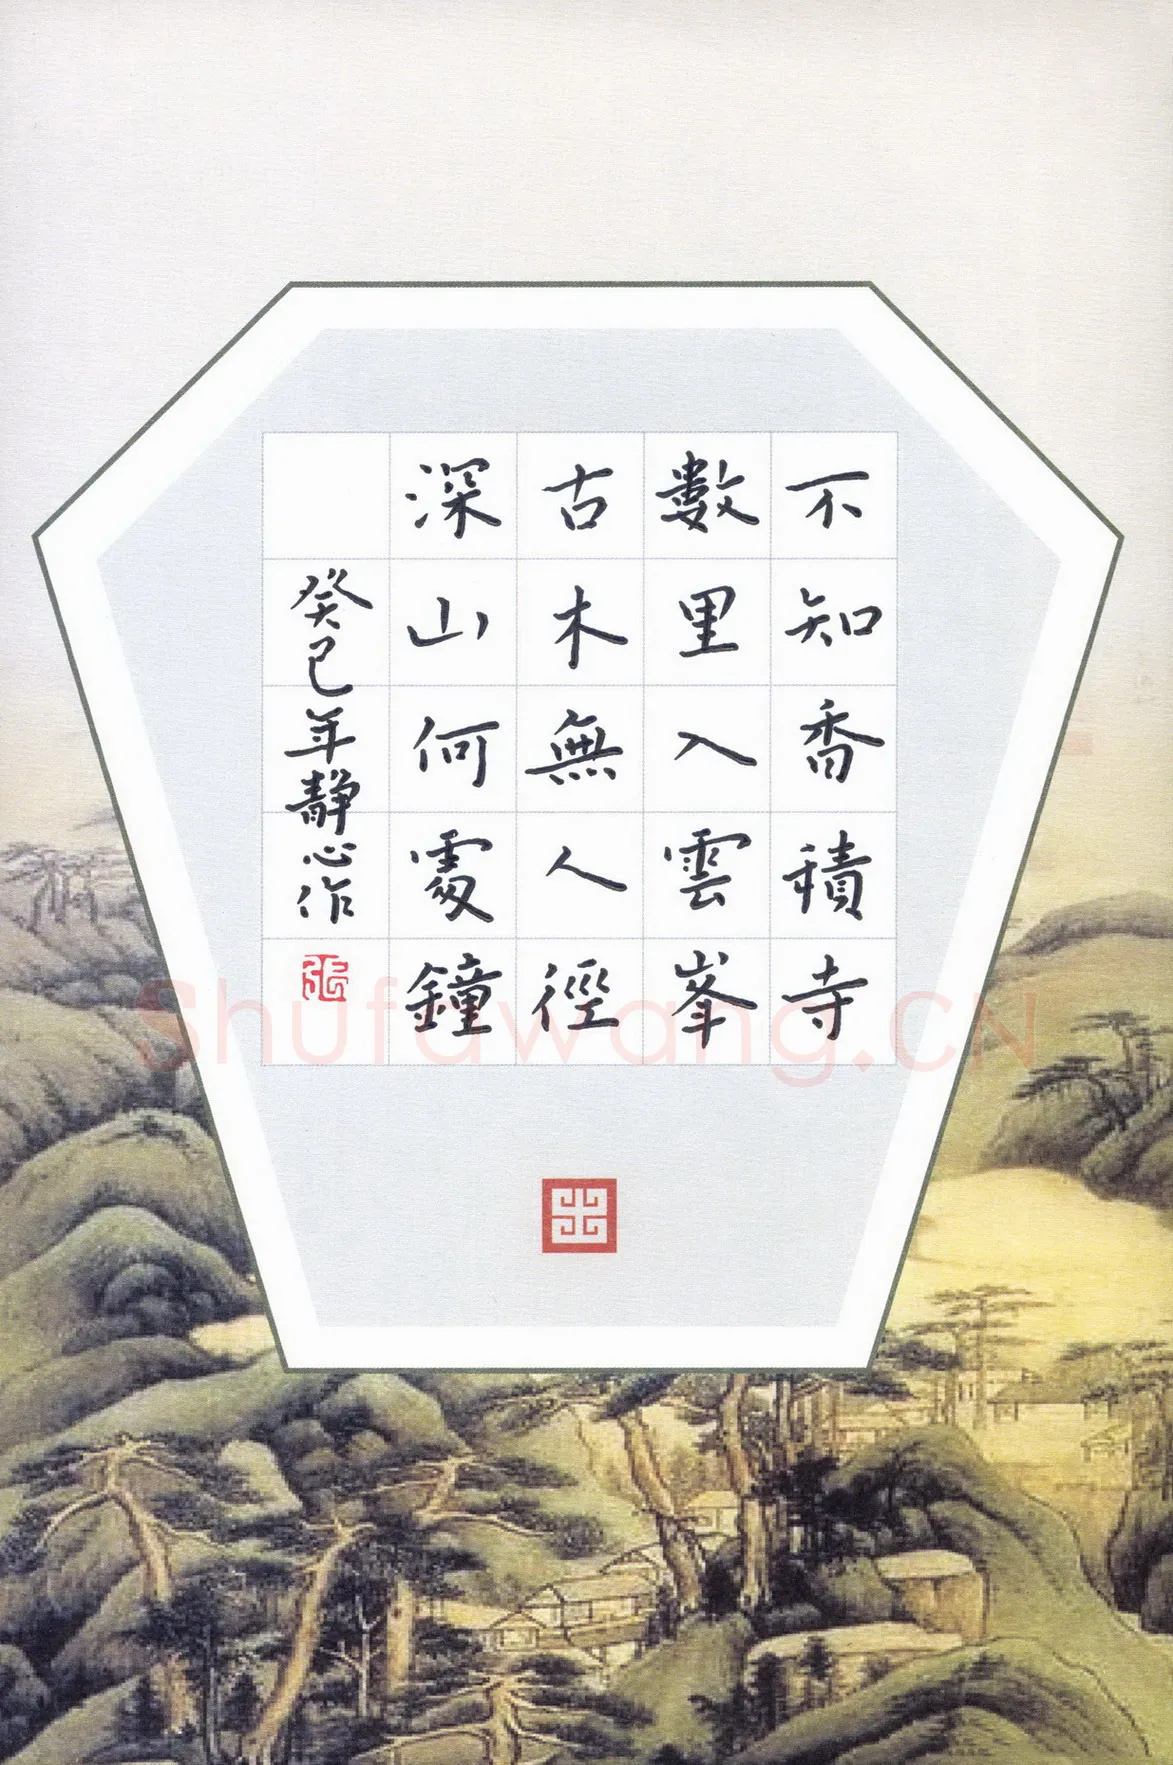 不知香積寺
數里入雲峯
古木無人徑
深山何處鐘
癸巳年靜心作
Shufawang.CN